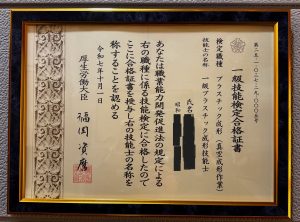 第二五-一-〇二七-二三-〇〇〇五号
一級技能検定合格証書
検定職種 プラスチック成形(真空成形作業)
技能士の名称 一級プラスチック成形技能士
氏名
昭和
あなたは職業能力開発促進法の規定による
右の職種に係る技能検定に合格したので
ここに合格証書を授与し右の技能士の名称を
称することを認める
令和七年十月一日
厚生労働大臣
福岡資麿